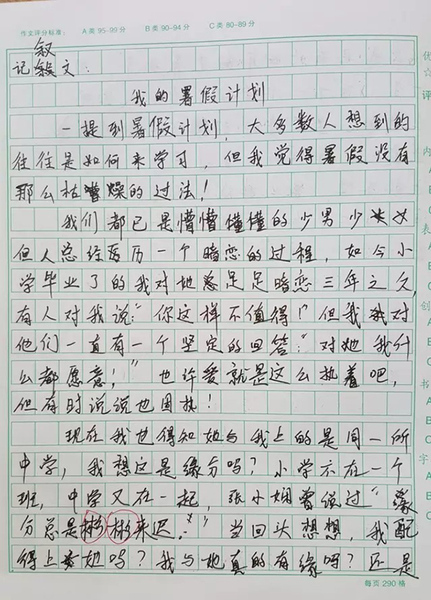 作文评分标准： A类 95-99分 B类 90-94分 C类 80-89分
叙
记文：
我的暑假计划
一提到暑假计划，大多数人想到的
往往是如何来学习，但我觉得暑假没有
那么枯燥的过法！
我们都已是懵懵懂懂的少男少女
但人总经历一个暗恋的过程，如今小
学毕业了的我对她总足足暗恋三年之久，
有人对我说："你这样不值得！"但我对
他们一直有一个坚定的回答："对她我什
么都愿意！"也许爱就是这么执着吧，
但有时说说也固执！
现在我也得知她与我上的是同一所
中学，我想这是缘分吗？小学不在一个
班，中学又在一起，张小娴曾经过"缘
分总是彬彬来迟。"当回头想想，我配
得上她吗？我与她真的有缘吗？还是
每页 290 格
优
☆
评
内
A
表
创
书
字
A
B